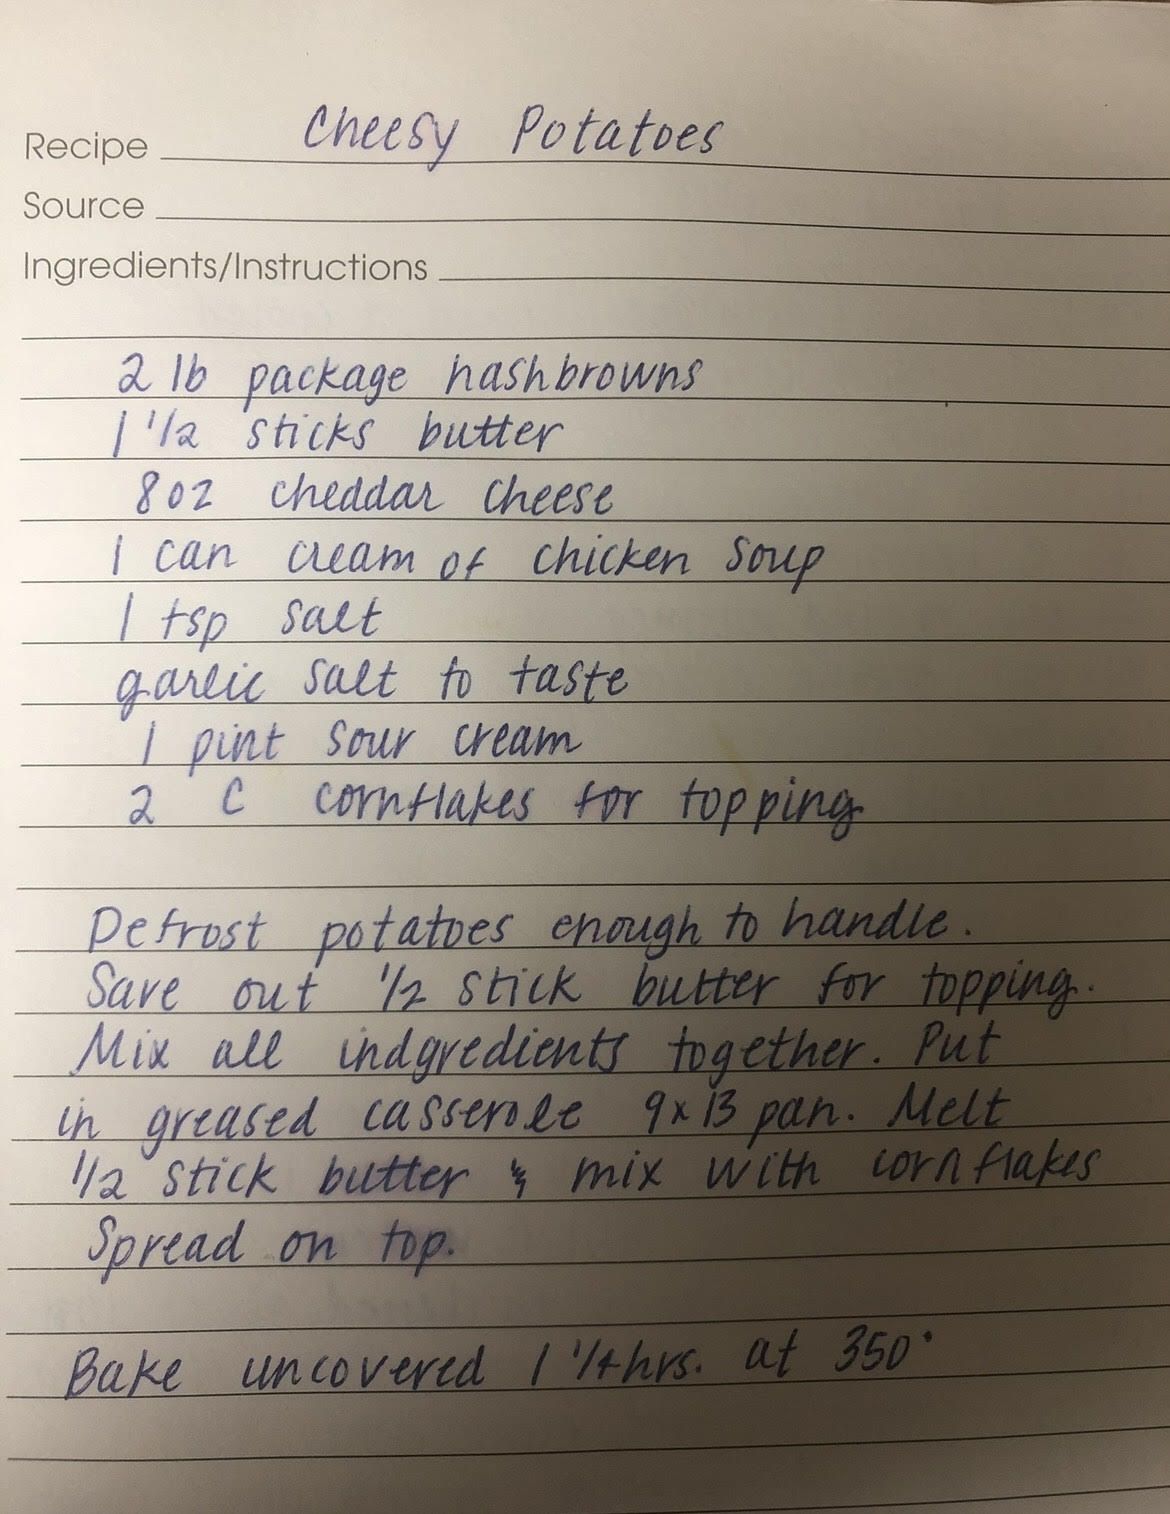 Recipe Cheesy Potatoes
Source
Ingredients/Instructions
2 lb package hashbrowns
1 1/2 sticks butter
8 oz cheddar cheese
1 can cream of chicken soup
1 tsp salt
garlic salt to taste
1 pint sour cream
2 C cornflakes for topping
Defrost potatoes enough to handle.
Save out 1/2 stick butter for topping.
Mix all indgredients together. Put
in greased casserole 9x13 pan. Melt
1/2 stick butter & mix with cornflakes
Spread on top.
Bake uncovered 1 1/4 hrs. at 350°